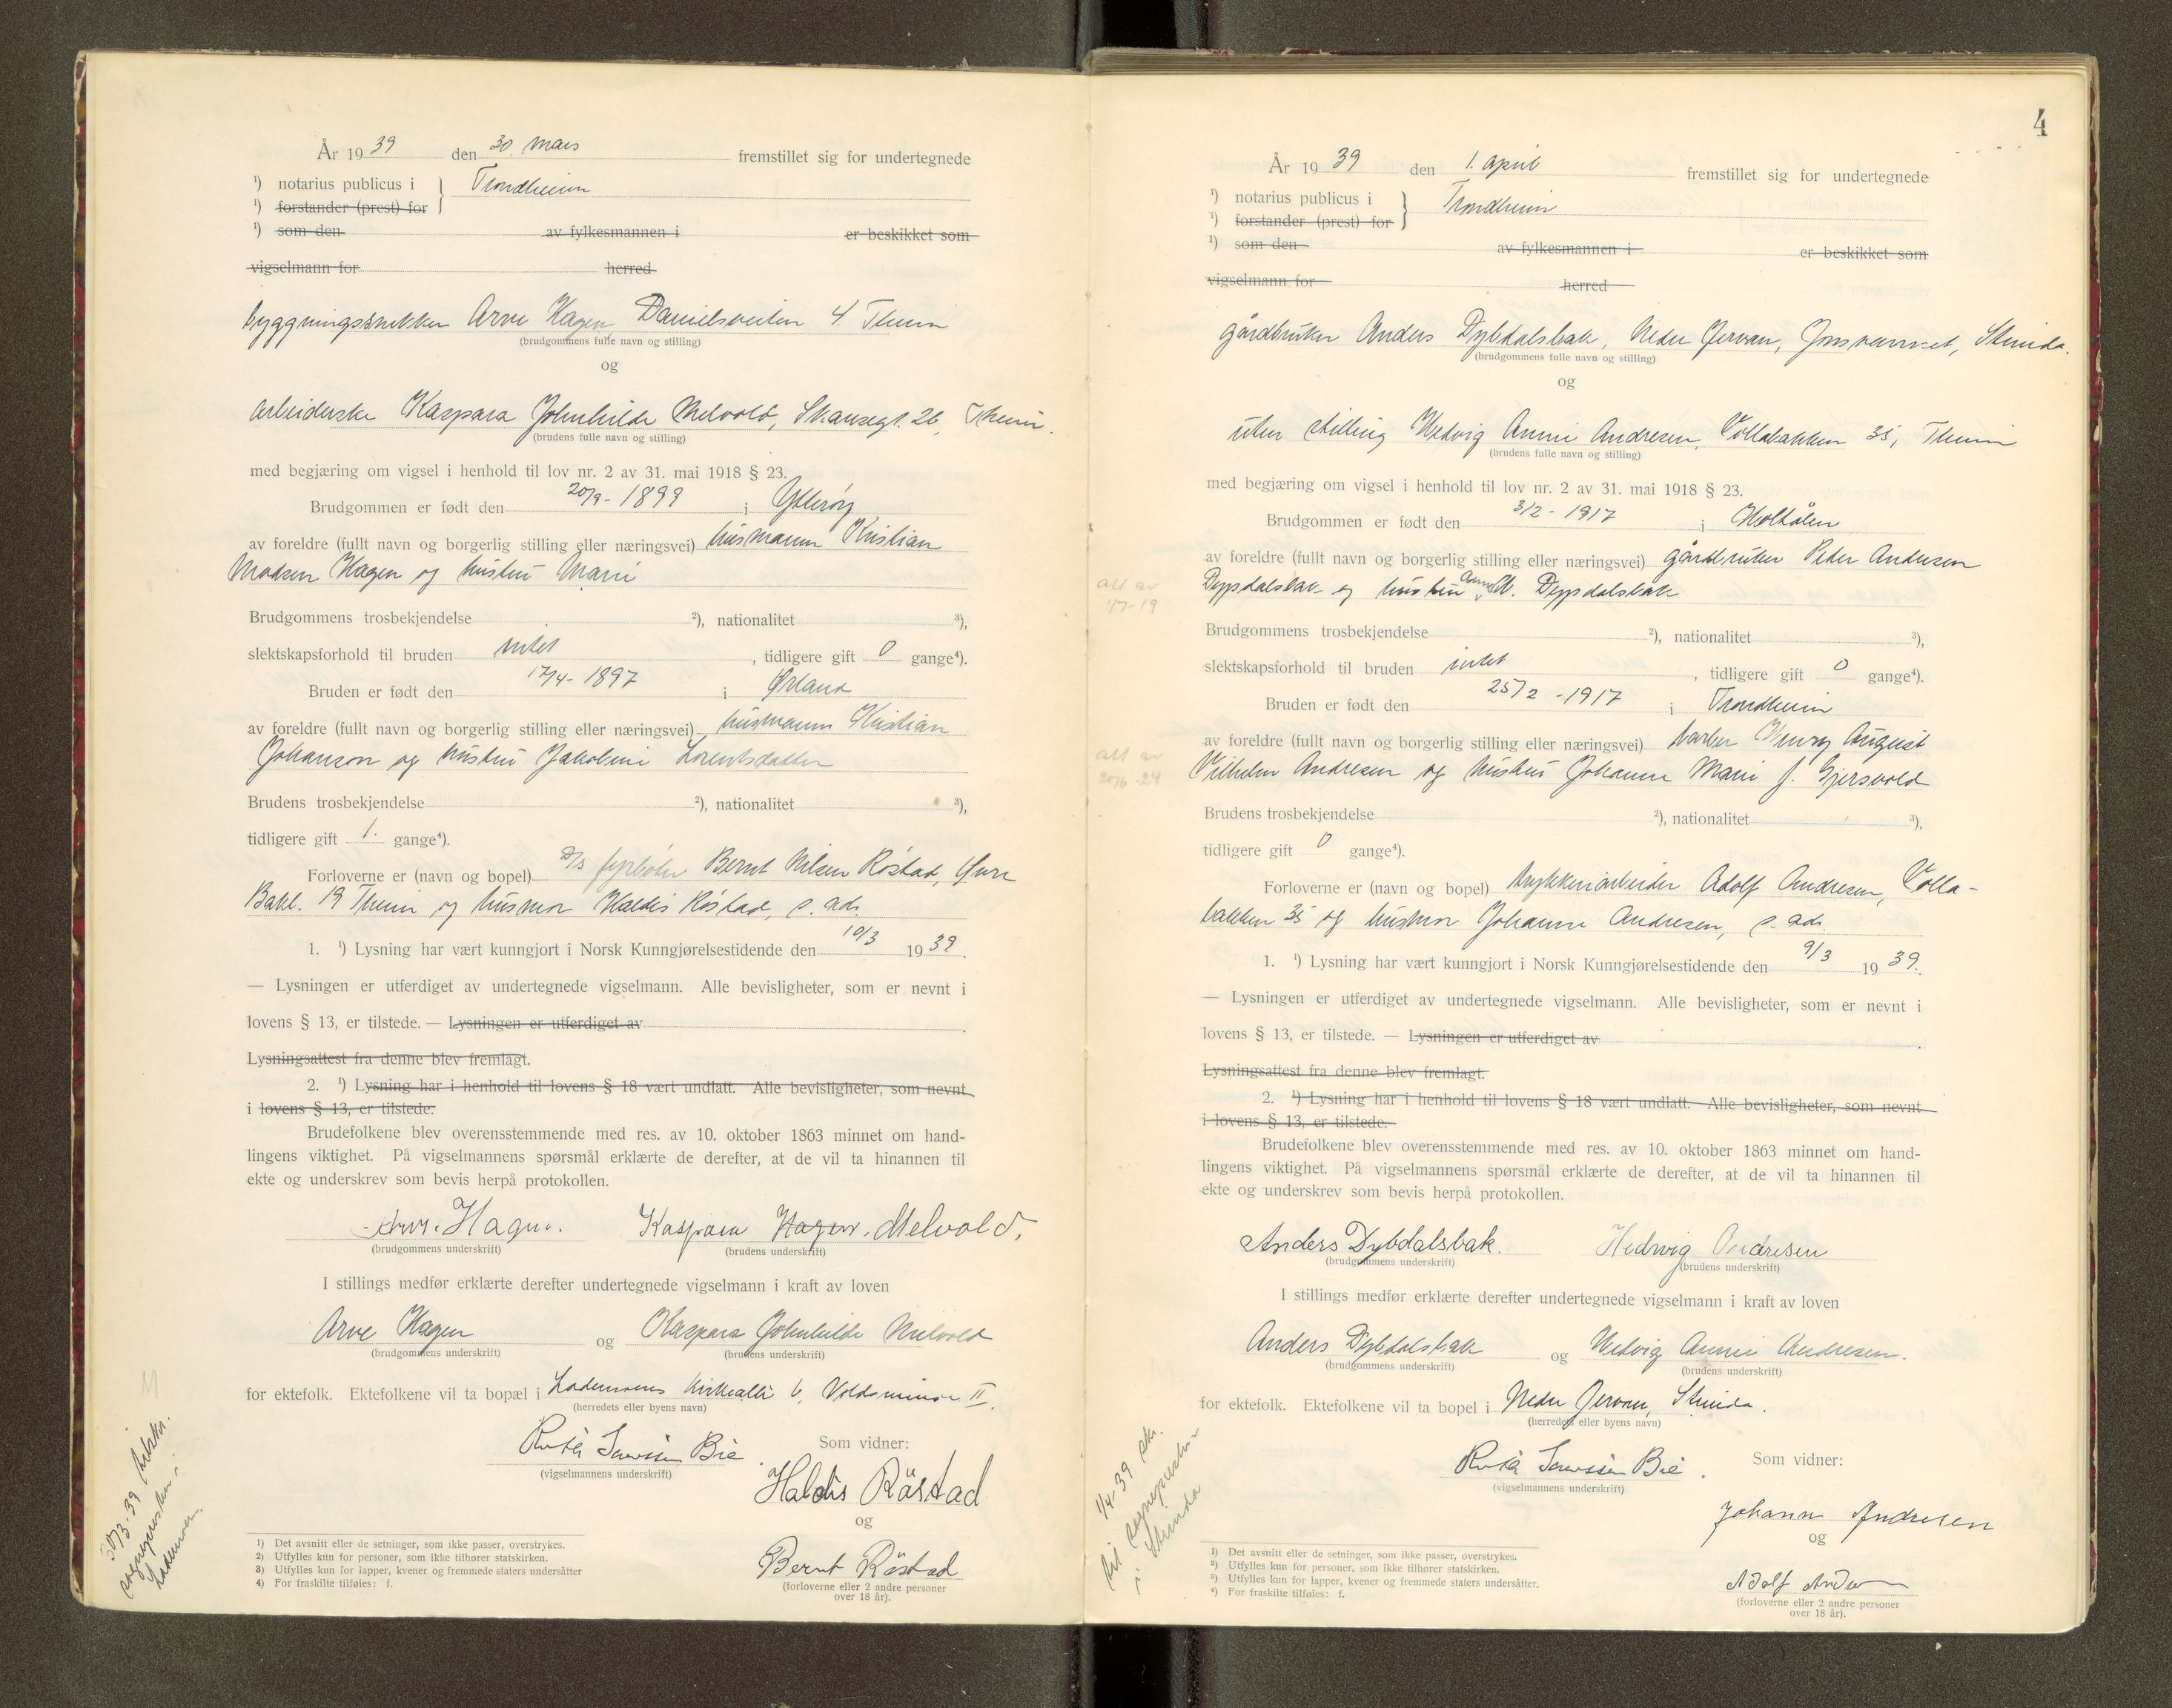 År 1939 den 30. mars fremstillet sig for undertegnede
¹) notarius publicus i } Trondheim
¹) forstander (prest) for
¹) som den av fylkesmannen i er beskikket som
vigselmann for herred
bygningssnekker Arve Hagen, Danielsveiten 4. Theim
(brudgommens fulle navn og stilling)
og
arbeiderske Kaspara Johnhilde Melvold, Skansegt. 26, Theim.
(brudens fulle navn og stilling)
med begjæring om vigsel i henhold til lov nr. 2 av 31. mai 1918 § 23.
Brudgommen er født den 20/9 - 1899 i Ytterøy
av foreldre (fullt navn og borgerlig stilling eller næringsvei) husmann Kristian
Madsen Hagen og hustru Marie
Brudgommens trosbekjendelse ²), nationalitet ³),
slektskapsforhold til bruden intet, tidligere gift 0 gange⁴).
Bruden er født den 17/4 - 1897 i Ørland
av foreldre (fullt navn og borgerlig stilling eller næringsvei) husmann Kristian
Johanson og hustru Jakobine Lorentsdatter
Brudens trosbekjendelse ²), nationalitet ³),
tidligere gift 1. gange⁴).
Forloverne er (navn og bopel) D/s fyrbøter Bernt Nilsen Röstad, Øvre
Bakl. 19 Theim og husmor Haldis Röstad, s. adr.
1. ¹) Lysning har vært kunngjort i Norsk Kunngjørelsestidende den 10/3 1939.
— Lysningen er utferdiget av undertegnede vigselmann. Alle bevisligheter, som er nevnt i
lovens § 13, er tilstede. — Lysningen er utferdiget av .
Lysningsattest fra denne blev fremlagt.
2. ¹) Lysning har i henhold til lovens § 18 vært undlatt. Alle bevisligheter, som nevnt
i lovens § 13, er tilstede.
Brudefolkene blev overensstemmende med res. av 10. oktober 1863 minnet om hand-
lingens viktighet. På vigselmannens spørsmål erklærte de derefter, at de vil ta hinannen til
ekte og underskrev som bevis herpå protokollen.
Arve. Hagen. Kaspara Hagen. Melvold.
(brudgommens underskrift) (brudens underskrift)
I stillings medfør erklærte derefter undertegnede vigselmann i kraft av loven
Arve Hagen og Kaspara Johnhilde Melvold
(brudgommens underskrift) (brudens underskrift)
for ektefolk. Ektefolkene vil ta bopæl i Lademoens kirkeallé 6, Voldsminde II.
(herredets eller byens navn)
Som vidner:
(vigselmannens underskrift)
Haldis Röstad
og
Bernt Röstad
(forloverne eller 2 andre personer
over 18 år).
¹) Det avsnitt eller de setninger, som ikke passer, overstrykes.
²) Utfylles kun for personer, som ikke tilhører statskirken.
³) Utfylles kun for lapper, kvener og fremmede staters undersåtter
⁴) For fraskilte tilføies: f.
30/3-39 tilskr.
sognepresten i
Lademoen.
4
År 1939 den 1. april fremstillet sig for undertegnede
¹) notarius publicus i } Trondheim
¹) forstander (prest) for
¹) som den av fylkesmannen i er beskikket som
vigselmann for herred
gårdbruker Anders Dybdalsbak, Nedre Jervan, Jonsvannet, Strinda.
(brudgommens fulle navn og stilling)
og
uten stilling Hedvig Annie Andresen, Vollabakken 35, Theim
(brudens fulle navn og stilling)
med begjæring om vigsel i henhold til lov nr. 2 av 31. mai 1918 § 23.
Brudgommen er født den 3/2 - 1917 i Holtålen
av foreldre (fullt navn og borgerlig stilling eller næringsvei) gårdbruker Peder Andersen
Dypdalsbak og hustru Dypdalsbak
Brudgommens trosbekjendelse ²), nationalitet ³),
slektskapsforhold til bruden intet, tidligere gift 0 gange⁴).
Bruden er født den 25/2 - 1917 i Trondheim
av foreldre (fullt navn og borgerlig stilling eller næringsvei) barber Henry August
Vilhelm Andresen og hustru Johanne Marie f. Gjersvold
Brudens trosbekjendelse ²), nationalitet ³),
tidligere gift 0 gange⁴).
Forloverne er (navn og bopel) trykkeriarbeider Adolf Andresen, Volla-
bakken 35 og husmor Johanne Andresen, s. adr.
1. ¹) Lysning har vært kunngjort i Norsk Kunngjørelsestidende den 9/3 1939.
— Lysningen er utferdiget av undertegnede vigselmann. Alle bevisligheter, som er nevnt i
lovens § 13, er tilstede. — Lysningen er utferdiget av .
Lysningsattest fra denne blev fremlagt.
2. ¹) Lysning har i henhold til lovens § 18 vært undlatt. Alle bevisligheter, som nevnt
i lovens § 13, er tilstede.
Brudefolkene blev overensstemmende med res. av 10. oktober 1863 minnet om hand-
lingens viktighet. På vigselmannens spørsmål erklærte de derefter, at de vil ta hinannen til
ekte og underskrev som bevis herpå protokollen.
Anders Dybdalsbak. Hedvig Andresen
(brudgommens underskrift) (brudens underskrift)
I stillings medfør erklærte derefter undertegnede vigselmann i kraft av loven
Anders Dybdalsbak og Hedvig Annie Andresen.
(brudgommens underskrift) (brudens underskrift)
for ektefolk. Ektefolkene vil ta bopel i Nedre Jervan, Strinda.
(herredets eller byens navn)
Som vidner:
(vigselmannens underskrift)
Johanne Andresen
og
Adolf Andresen
(forloverne eller 2 andre personer
over 18 år).
¹) Det avsnitt eller de setninger, som ikke passer, overstrykes.
²) Utfylles kun for personer, som ikke tilhører statskirken.
³) Utfylles kun for lapper, kvener og fremmede staters undersåtter.
⁴) For fraskilte tilføies: f.
att av
1/7-19
att av
20/6-24
1/4-39 skr.
til sognepresten
i Strinda